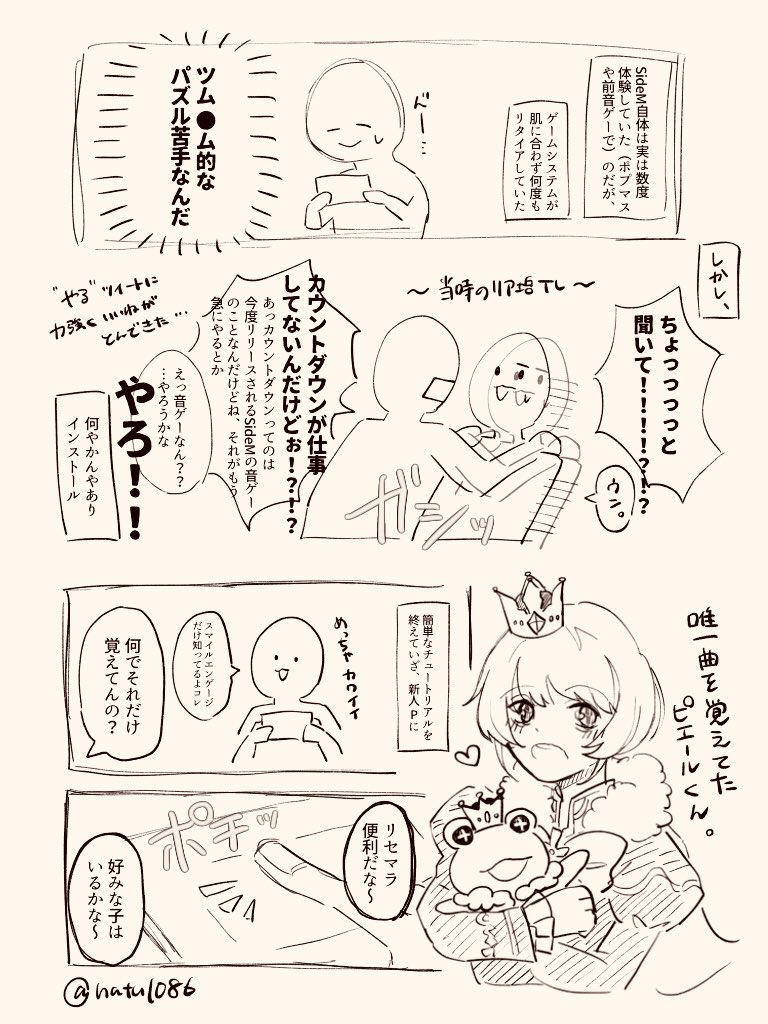 SideM自体は実は数度
体験していた（ポプマス
や前音ゲーで）のだが、
ゲームシステムが
肌に合わず何度も
リタイアしていた
どー…
ツム●ム的な
パズル苦手なんだ
しかし、
ちょっっっっと
聞いて！！！！？！？
ウン。
～当時のリア垢TL～
ガシッ
カウントダウンが仕事
してないんだけどぉ！？！？
あっカウントダウンってのは
今度リリースされるSideMの音ゲー
のことなんだけどね、それがもう
急にやるとか
えっ音ゲーなん？？
…やろうかな
"やる"ツイートに
力強くいいねが
とんできた…
やろ！！
何やかんやあり
インストール
唯一曲を覚えてた
ピエールくん。
簡単なチュートリアルを
終えていざ、新人Pに
めっちゃカワイイ
スマイルエンゲージ
だけ知ってるよコレ
何でそれだけ
覚えてんの？
リセマラ
便利だな～
ポチッ
好みな子は
いるかな～
@natu1086